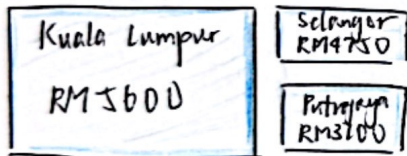 Kuala Lumpur
RM5600
Selangor
RM4750
Putrajaya